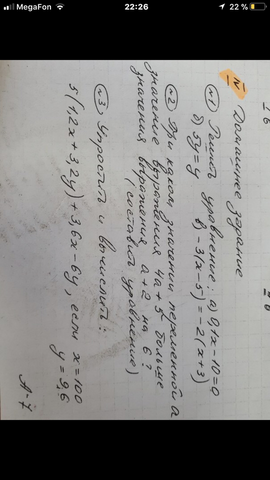 MegaFon 22:26 22 %
IV Домашнее задание
№1 Решить уравнение: а) 9,1x-10=0
б) 5y=y в) -3(x-5)=-2(x+3)
№2 При каком значении переменной a
значение выражения 4a+5 больше
значения выражения a+2 на 6?
(составить уравнение)
№3 Упростить и вычислить:
5(1,2x+3,2y)+3,6x-6y, если x=100
y=9,6
A-7